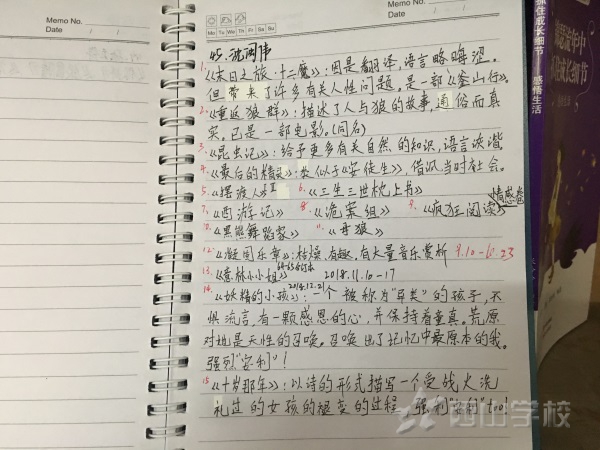 Memo No.
Memo No.
Date / /
Mo Tu We Th Fr Sa Su
45. 沈雨伟
1.《末日之旅·十二魔》：因是翻译,语言略晦涩。
但带来了许多有关人性问题。是一部《釜山行》。
2.《重返狼群》：描述了人与狼的故事,通俗而真
实,已是一部电影.(同名)
3.《昆虫记》：给予更多有关自然的知识,语言诙谐
4.《最后的精灵》：类似于《安徒生》,借讽当时社会。
5.《摆渡人》Ⅱ 6.《三生三世枕上书》
7.《西游记》 8.《诡案组》 9.《疯狂阅读》情感卷
10.《黑熊舞蹈家》 11.《母狼》
12.《凝固乐章》：枯燥,有趣,有大量音乐赏析 9.10-10.23
13.《意林小小姐》64-65合订本 2018.11.10-17
14.《妖精的小孩》2018.12.21：一个被称为“异类”的孩子,不
惧流言,有一颗感恩的心,并保持着童真。荒原
对她是天性的召唤。召唤出了记忆中最原本的我。
强烈“安利”！
15.《十岁那年》：以诗的形式描写一个受战火洗
礼过的女孩的蜕变的过程 强利“安利”too!
抓住成长细节 感悟生活
西山学校